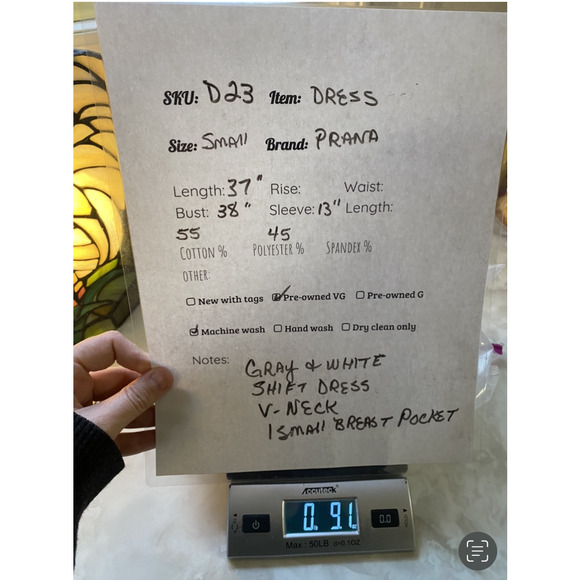 SKU: D23 Item: DRESS
Size: SMAll Brand: PRANA
Length: 37" Rise: Waist:
Bust: 38" Sleeve: 13" Length:
55 45
COTTON % POLYESTER % SPANDEX %
OTHER:
New with tags Pre-owned VG Pre-owned G
Machine wash Hand wash Dry clean only
Notes: GRAY & WHITE
SHIFT DRESS
V-NECK
1 SMAll BREAST POCKET
Accuteck
0.0
Max: 50LB d=0.1OZ